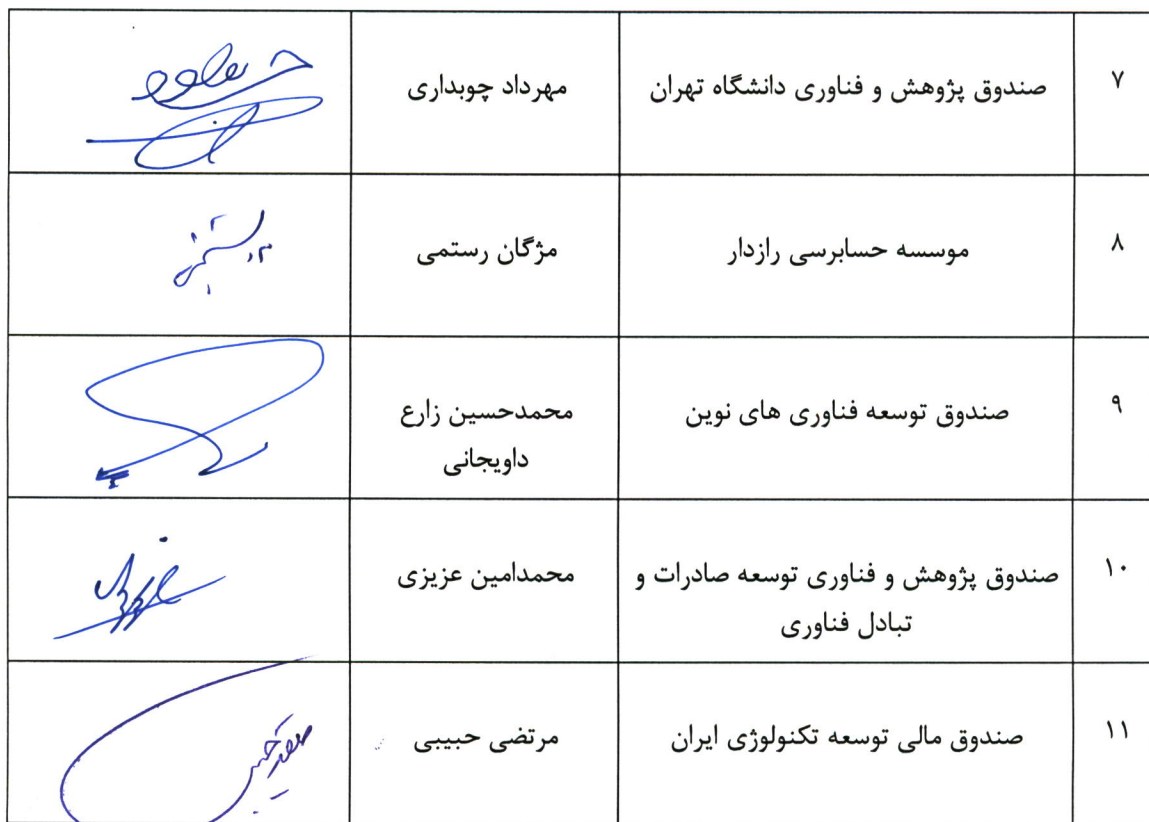 ۷ صندوق پژوهش و فناوری دانشگاه تهران مهرداد چوبداری
۸ موسسه حسابرسی رازدار مژگان رستمی
۹ صندوق توسعه فناوری های نوین محمدحسین زارع
داویجانی
۱۰ صندوق پژوهش و فناوری توسعه صادرات و محمدامین عزیزی
تبادل فناوری
۱۱ صندوق مالی توسعه تکنولوژی ایران مرتضی حبیبی